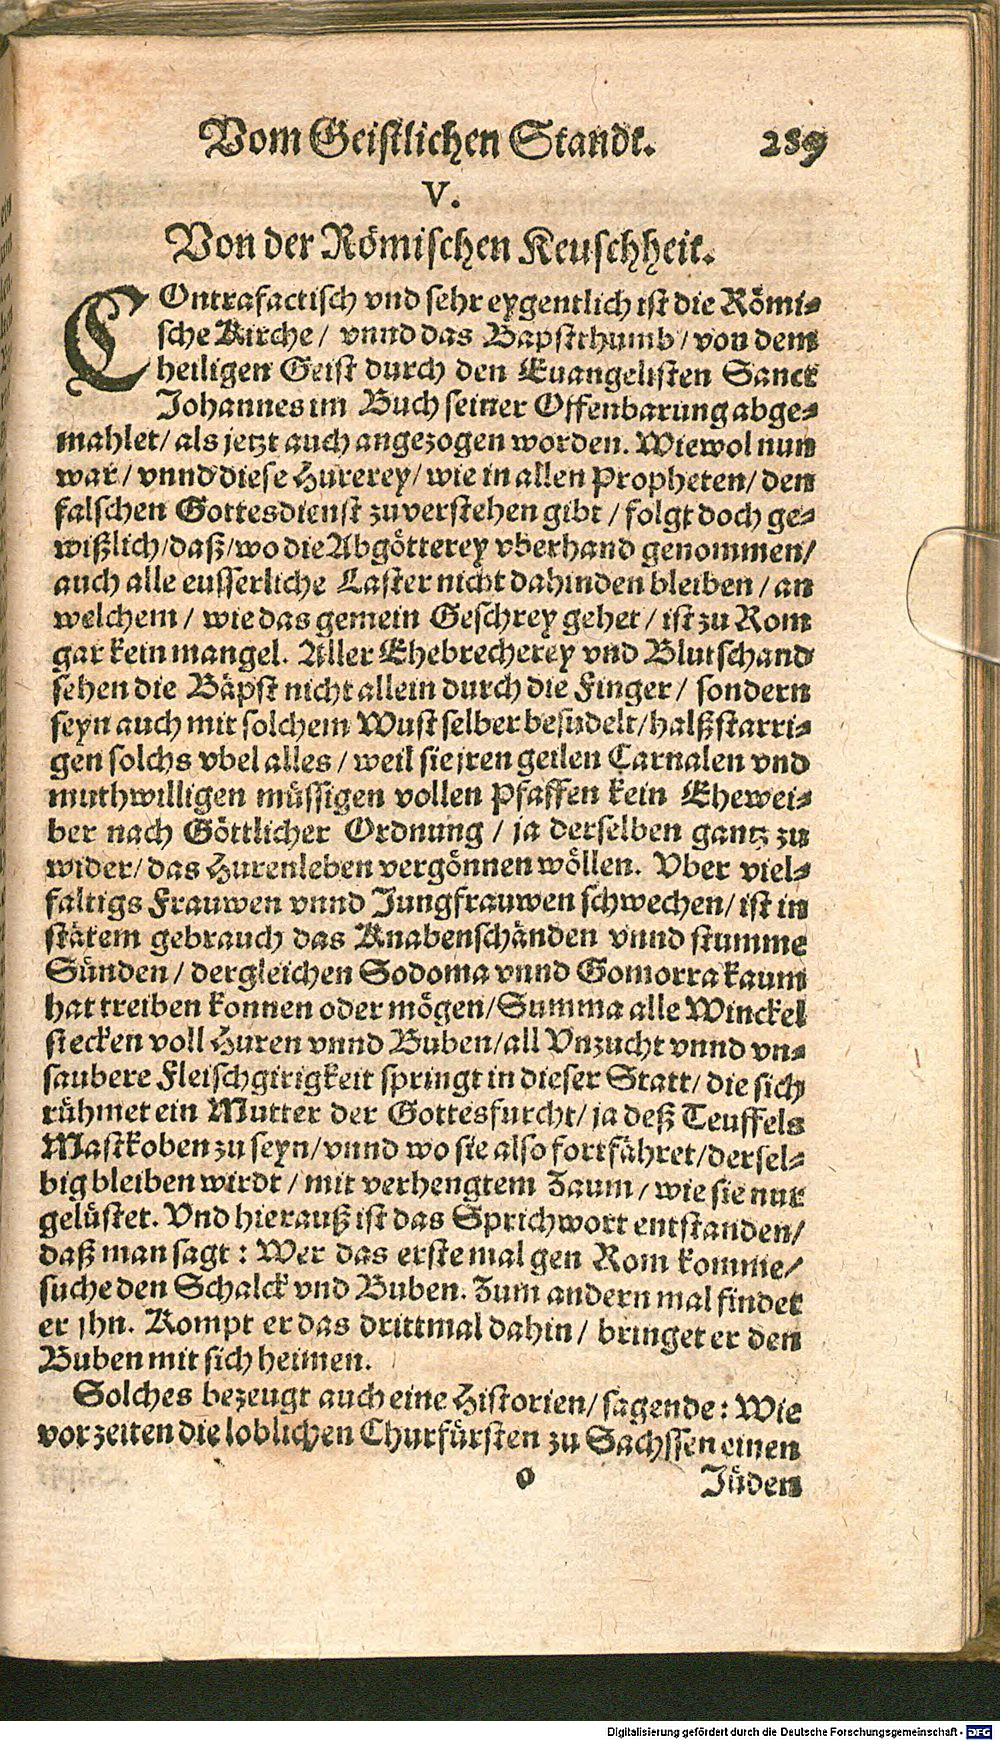 Vom Geistlichen Standt. 289
V.
Von der Römischen Keuschheit.
COntrafactisch vnd sehr eygentlich ist die Römi-
sche Kirche / vnnd das Bapstthumb / von dem
heiligen Geist durch den Euangelisten Sanct
Johannes im Buch seiner Offenbarung abge-
mahlet / als jetzt auch angezogen worden. Wiewol nun
war / vnnd diese Hurerey / wie in allen Propheten / den
falschen Gottesdienst zuverstehen gibt / folgt doch ge-
wißlich / daß / wo die Abgötterey vberhand genommen /
auch alle eusserliche Laster nicht dahinden bleiben / an
welchem / wie das gemein Geschrey gehet / ist zu Rom
gar kein mangel. Aller Ehebrecherey vnd Blutschand
sehen die Bäpst nicht allein durch die Finger / sondern
seyn auch mit solchem Wust selber besudelt / halßstarri-
gen solchs vbel alles / weil sie jren geilen Carnalen vnd
muthwilligen müssigen vollen Pfaffen kein Ehewei-
ber nach Göttlicher Ordnung / ja derselben gantz zu
wider / das Hurenleben vergönnen wöllen. Vber viel-
faltigs Frauwen vnnd Jungfrauwen schwechen / ist in
stätem gebrauch das Knabenschänden vnnd stumme
Sünden / dergleichen Sodoma vnnd Gomorra kaum
hat treiben konnen oder mögen / Summa alle Winckel
stecken voll Huren vnnd Buben / all Vnzucht vnnd vn-
saubere Fleischgirigkeit springt in dieser Statt / die sich
rühmet ein Mutter der Gottesfurcht / ja deß Teuffels
Mastkoben zu seyn / vnnd wo sie also fortfähret / dersel-
big bleiben wirdt / mit verhengtem Zaum / wie sie nur
gelüstet. Vnd hierauß ist das Sprichwort entstanden /
daß man sagt : Wer das erste mal gen Rom komme /
suche den Schalck vnd Buben. Zum andern mal findet
er jhn. Kompt er das drittmal dahin / bringet er den
Buben mit sich heimen.
Solches bezeugt auch eine Historien / sagende : Wie
vorzeiten die loblichen Churfürsten zu Sachssen einen
o Jüden
Digitalisierung gefördert durch die Deutsche Forschungsgemeinschaft - DFG